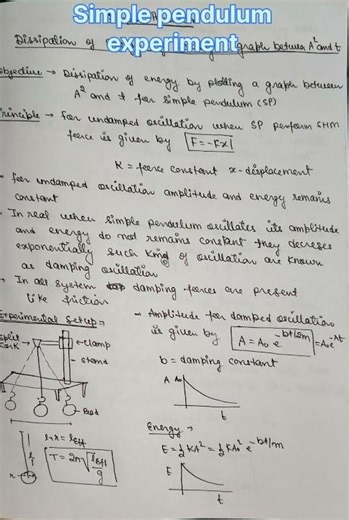 Simple pendulum
experiment
Dissipation of graph between A² and t
Objective → Dissipation of energy by plotting a graph between
A² and t for simple pendulum (SP)
Principle → For undamped oscillation when SP perform SHM
force is given by F = -Kx
K = force constant x - displacement
- for undamped oscillation amplitude and energy remains
constant
- In real when simple pendulum oscillates its amplitude
and energy do not remains constant they decreses
exponentially such kind of oscillation are known
as damping oscillation
→ In all system damping forces are present
like friction
Experimental Setup →
Split
cork
clamp
stand
Bob
l+r = leff
T = 2π√leff/g
- Amplitude for damped oscillation
is given by A = A₀ e^-bt/2m = A₀e^-λt
b = damping constant
A A₀
t
Energy →
E = ½ KA² = ½ KA₀² e^-bt/m
E
t